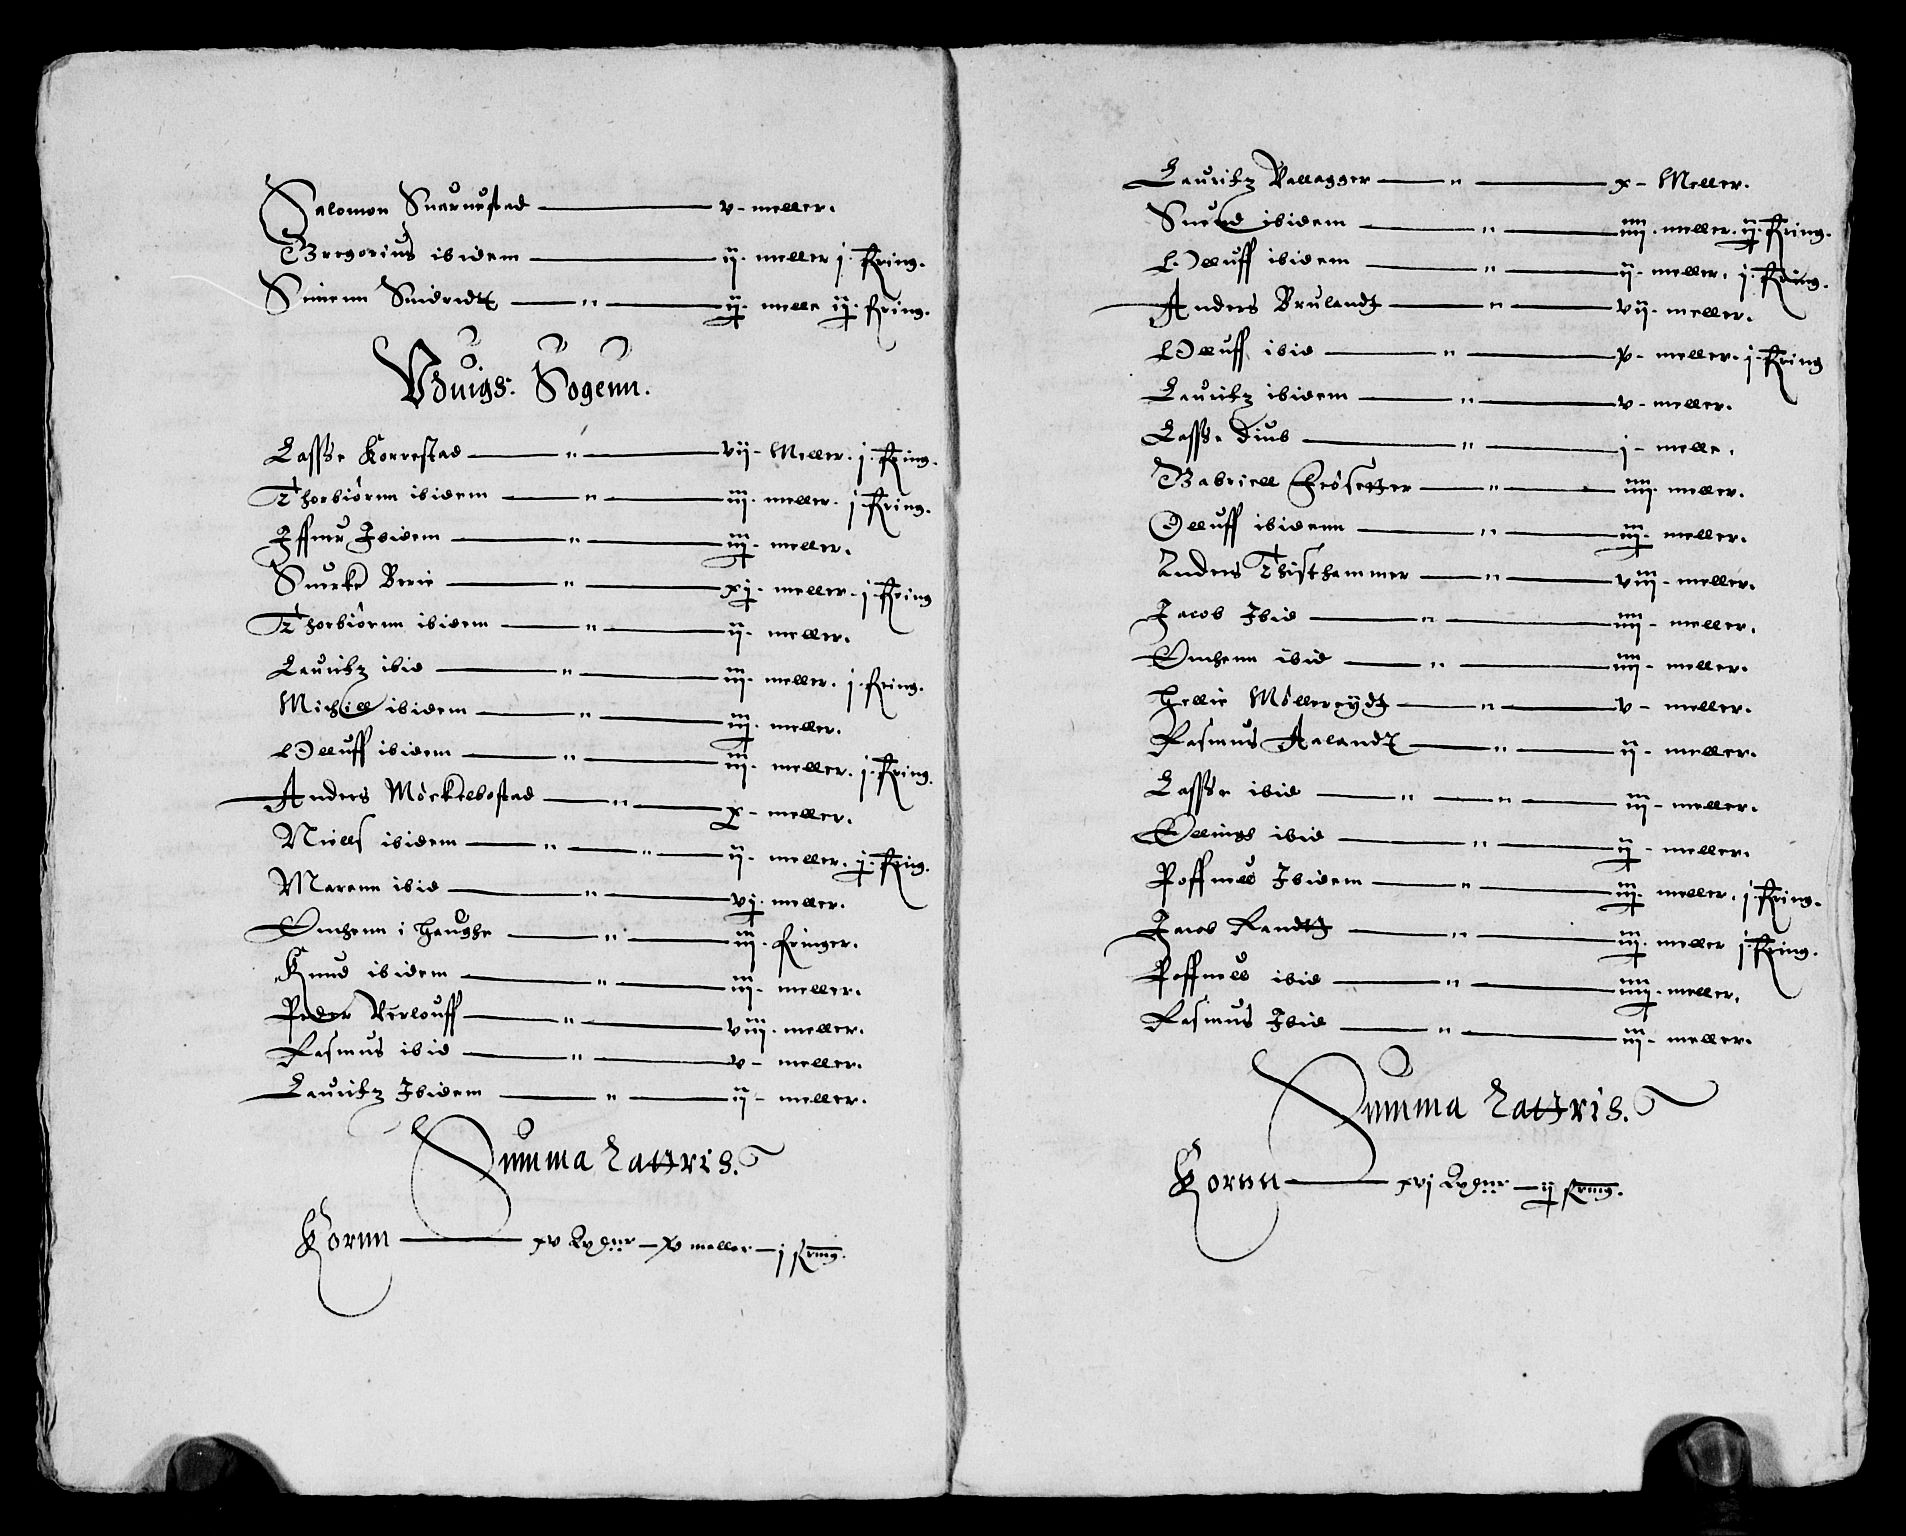 Salomon Snarnestad — v - meller.
Gregorius ibidem — ij. meller j. Kring.
Simenn — " — ij. melle ij. kring.
Sogenn.
Lassße Korrestad — " — vij - Meller. j. Kring.
Thorbiörnn ibidem — " — iij. meller. j Kring.
Iffuer Ibidem — " — iij - meller.
Berie — " — xj - meller - j. Kring
Thorbiörnn ibidem — " — ij - meller.
Lauritz ibid — " — iij - meller. j. Kring.
Michill ibidem — " — iij. meller.
Olluff ibidem — " — iij - meller. j. Kring.
Anders Möcklebostad — " — x - meller.
Niells ibidem — " — " — ij - meller. j. Kring.
Marenn ibid — " — vj. meller.
Omhenn i Haughe — " — iij. kringer.
Knud ibidem — " — iij - meller.
Peder Verlouff — " — viij. meller.
Rasmus ibid — " — v - meller.
Lauritz Ibidem — " — ij - meller.
Summa Lattris.
Kornn — xv — xv meller — j Kring.
Lauritz Vallagger — " — x - Meller.
Suend ibidem — " — iiij. meller. ij. Kring.
Olluff ibidem — " — ij - meller. j. Kring.
Anders Brulandt — " — vij - meller.
Olluff ibid — " — x - meller. j. Kring
Lauritz ibidem — " — v - meller.
Lassße — " — j - melle.
Gabriell — " — iiij. meller.
Olluff ibidenn — " — iij. meller.
Anders Thisthammer — " — viij - meller.
Jacob Ibid — " — iiij - meller.
Omhenn ibid — " — iiij - meller.
Hellie Möllereydt — " — v - meller.
Rasmus Aalandt — " — ij - meller.
Lassße ibid — " — " — iij - meller.
ibid — " — ij - meller.
Poffuell Ibidem — " — iij meller. j. Kring.
Jacob Randtt — " — iij. meller j. Kring.
Poffuell ibid — " — iiij. meller.
Rasmus Ibid — " — iij - meller.
Summa Lattris.
Kornn — xvj — ij Kring.